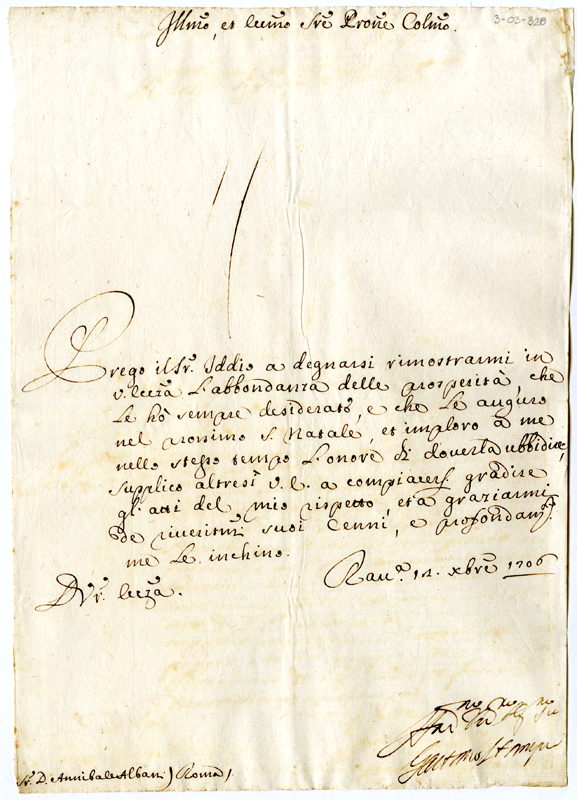 3-03-828
Illmo, et Eccmo Sre Prone Colmo.
Prego il Sr. Iddio a degnarsi rimostrarmi in
v. Eccza l'abbondanza delle prosperità, che
Le hò sempre desiderato, e che Le auguro
nel prossimo S. Natale, et imploro à me
nello stesso tempo l'onore di doverla ubbidire,
supplico altresì V. E. a compiacersi gradire
gli atti del mio rispetto, et à graziarmi
de riveritmi suoi Cenni, e profondamte
me Le inchino.
D Vr. Eccza.
Rava. 12. xbre 1706
Gaetano Stampa
Sr. D. Annibale Albani) Roma).